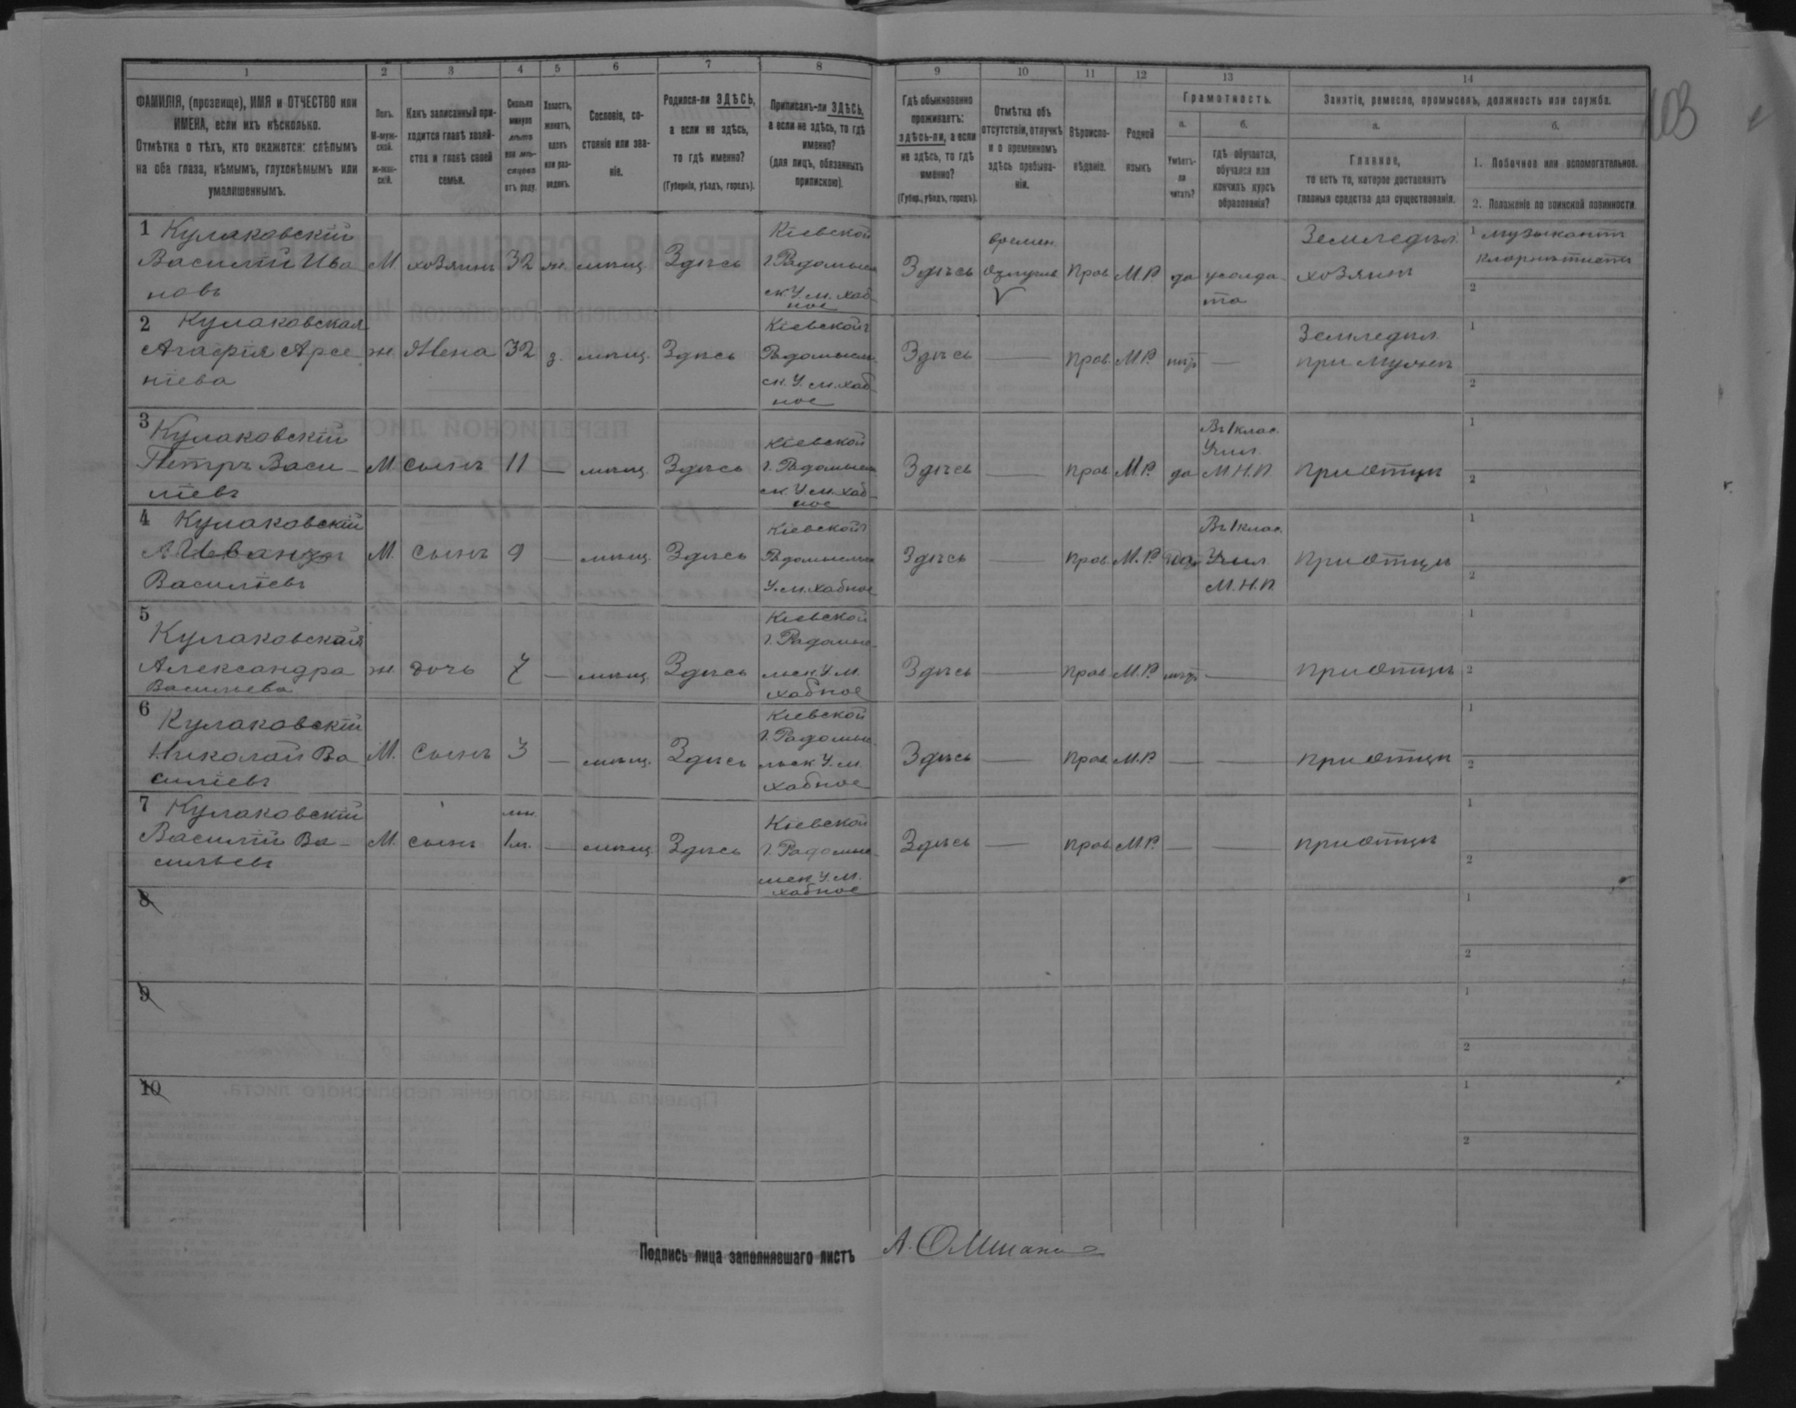 1 2 3 4 5 6 7 8 9 10 11 12 13 14
ФАМИЛІЯ, (прозвище), ИМЯ и ОТЧЕСТВО или
ИМЕНА, если ихъ нѣсколько.
Отмѣтка о тѣхъ, кто окажется: слѣпымъ
на оба глаза, нѣмымъ, глухонѣмымъ или
умалишеннымъ.
Полъ.
М-муж-
ской.
Ж-жен-
скій.
Какъ записанный при-
ходится главѣ хозяй-
ства и главѣ своей
семьи.
Сколько
минуло
лѣтъ
или мѣ-
сяцевъ
отъ роду.
Холостъ,
женатъ,
вдовъ
или раз-
веденъ.
Сословіе, со-
стояніе или зва-
ніе.
Родился-ли ЗДѢСЬ,
а если не здѣсь,
то гдѣ именно?
(Губернія, уѣздъ, городъ).
Приписанъ-ли ЗДѢСЬ,
а если не здѣсь, то гдѣ
именно?
(для лицъ, обязанныхъ
припискою).
Гдѣ обыкновенно
проживаетъ:
здѣсь-ли, а если
не здѣсь, то гдѣ
именно?
(Губер., уѣздъ, городъ).
Отмѣтка объ
отсутствіи, отлучкѣ
и о временномъ
здѣсь пребыва-
ніи.
Вѣроиспо-
вѣданіе.
Родной
языкъ
Грамотность.
а.
Умѣетъ-
ли
читать?
б.
гдѣ обучается,
обучался или
кончилъ курсъ
образованія?
Занятіе, ремесло, промыселъ, должность или служба.
а.
Главное,
то есть то, которое доставляетъ
главныя средства для существованія.
б.
1. Побочное или вспомогательное.
2. Положеніе по воинской повинности.
103
1 Кулаковскій
Василій Ива
новъ
М. хозяинъ 32 ж. мѣщ. Здѣсь
Кіевской
г. Радомысл
ск. У. м. Хаб-
ное
Здѣсь
времен.
отлуч.
Прав М.Р. да
усолда-
та
Земледѣл.
хозяинъ
1 музыкантъ
кларнетистъ
2
2 Кулаковская
Агафія Арсе
ніева
ж. Жена 32 з. мѣщ. Здѣсь
Кіевской г
Радомысл
ск. У. м. Хаб-
ное
Здѣсь — Прав М.Р. нѣтъ —
Земледѣл.
при мужѣ
1
2
3 Кулаковскій
Петръ Васи-
ліевъ
М сынъ 11 — мѣщ. Здѣсь
Кіевской
г. Радомысл
ск. У. м. Хаб-
ное
Здѣсь — Прав М.Р. да
Въ 1 клас.
Учил.
М.Н.П.
приотцѣ
1
2
4 Кулаковскій
Иванъ
Василіевъ
М. сынъ 9 — мѣщ. Здѣсь
Кіевской г
Радомысл
У. м. Хабное
Здѣсь — Прав. М.Р. да
Въ 1 клас.
Учил
М.Н.П.
приотцѣ
1
2
5
Кулаковская
Александра
Василиева
ж. дочь 7 — мѣщ. Здѣсь
Кіевской
г. Радомыс-
льск У. м.
Хабное
Здѣсь — Прав М.Р. нѣтъ —
приотцѣ
1
2
6
Кулаковскій
Николай Ва
силіевъ
М. сынъ 3 — мѣщ. Здѣсь
Кіевской
г. Радомыс-
льск У. м.
Хабное
Здѣсь — Прав М.Р. — —
приотцѣ
1
2
7 Кулаковскій
Василій Ва-
сильевъ
М. сынъ 1м. — мѣщ. Здѣсь
Кіевской
г. Радомыс-
льск У. м.
Хабное
Здѣсь — Прав М.Р. — —
приотцѣ
1
2
8
1
2
9
1
2
10
1
2
Подпись лица заполнявшаго листъ